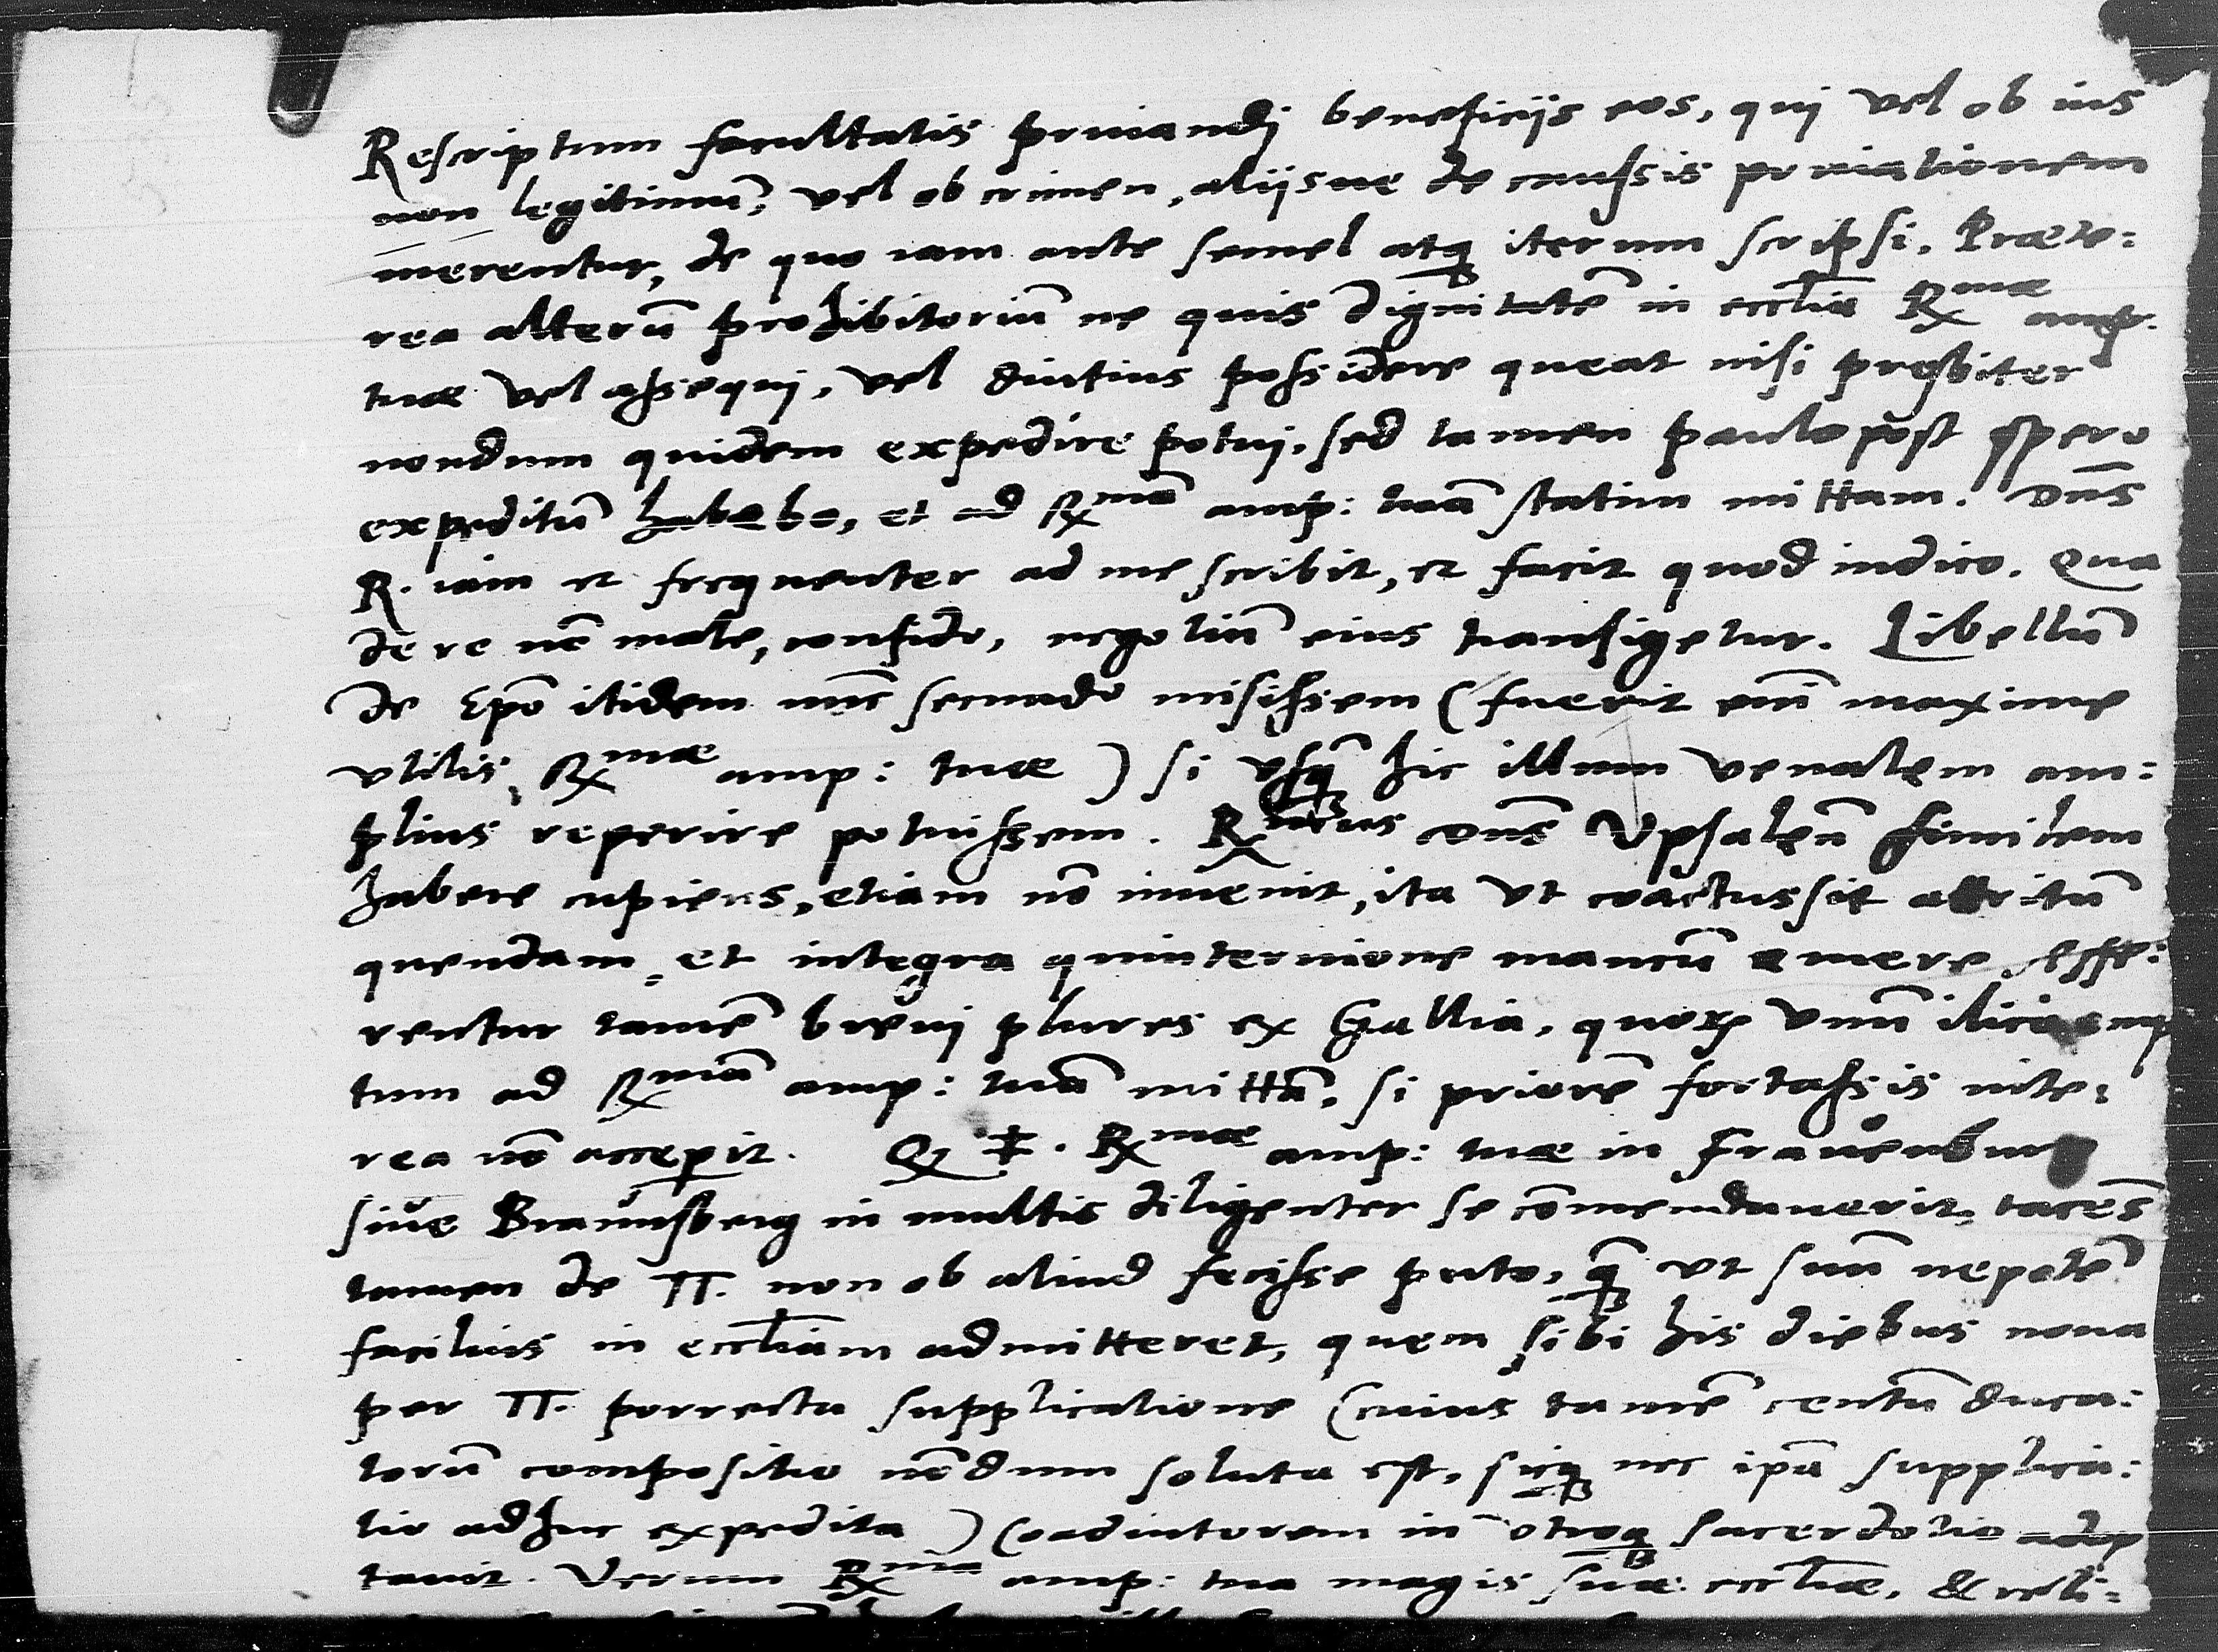 Rescriptum facultatis priuandj beneficijs eos, quj vel ob ius
non legitimũ, vel ob crimen, alijsue de caussis priuationem
merentur, de quo iam ante semel atq₃ iterum scripsi. Præte:
rea alterũ prohibitoriũ ne quis dignitatẽ in ecclīa Rmae amp.
tuæ vel assequj, vel diutius possidere queat nisi presbiter
nondum quidem expedire potuj, sed tamen paulo post spero
expeditũ habebo, et ad Rmã amp: tuã statim mittam. Dñs
R. iam et frequenter ad me scribit, et facit quod indico. Qua
de re nõ male, confido, negotiũ eius transigetur. Libellũ
de Epõ itidem nũc secundo misissem (fuerit eñi maxime
vtilis Rmae amp: tuæ) si vsq₃ hic illum venalem am:
plius reperire potuissem. Rmus Dñs Vpsaleñ similem
habere cupiens, etiam nõ inuenit, ita vt coactus sit attritũ
quendam et integra quinternione mancũ emere. Affe:
rentur tamẽ breuj plures ex Gallia, quorꝝ vnũ ilico emp
tum ad Rmã amp: tuã mittã, si priorẽ fortassis inte:
rea nõ acceperit. Q ‡. Rmae amp: tuæ in Frauenburg
siue Braunsberg in multis diligenter se cõmendauerit, tacẽs
tamen de π. non ob aliud fecisse puto, q̃ vt suũ nepotẽ
facilius in eccliam admitteret, quem sibi his diebus noua
per π. porrecta supplicatione (cuius tamẽ centũ duca:
torũ compositio nõdum soluta est, sicq₃ nec ipã supplica:
tio adhuc expedita) Coadiutorem in vtroq₃ sacerdotio adop
tauit. Verum Rma amp: tua magis suæ ecclīæ, & reli: